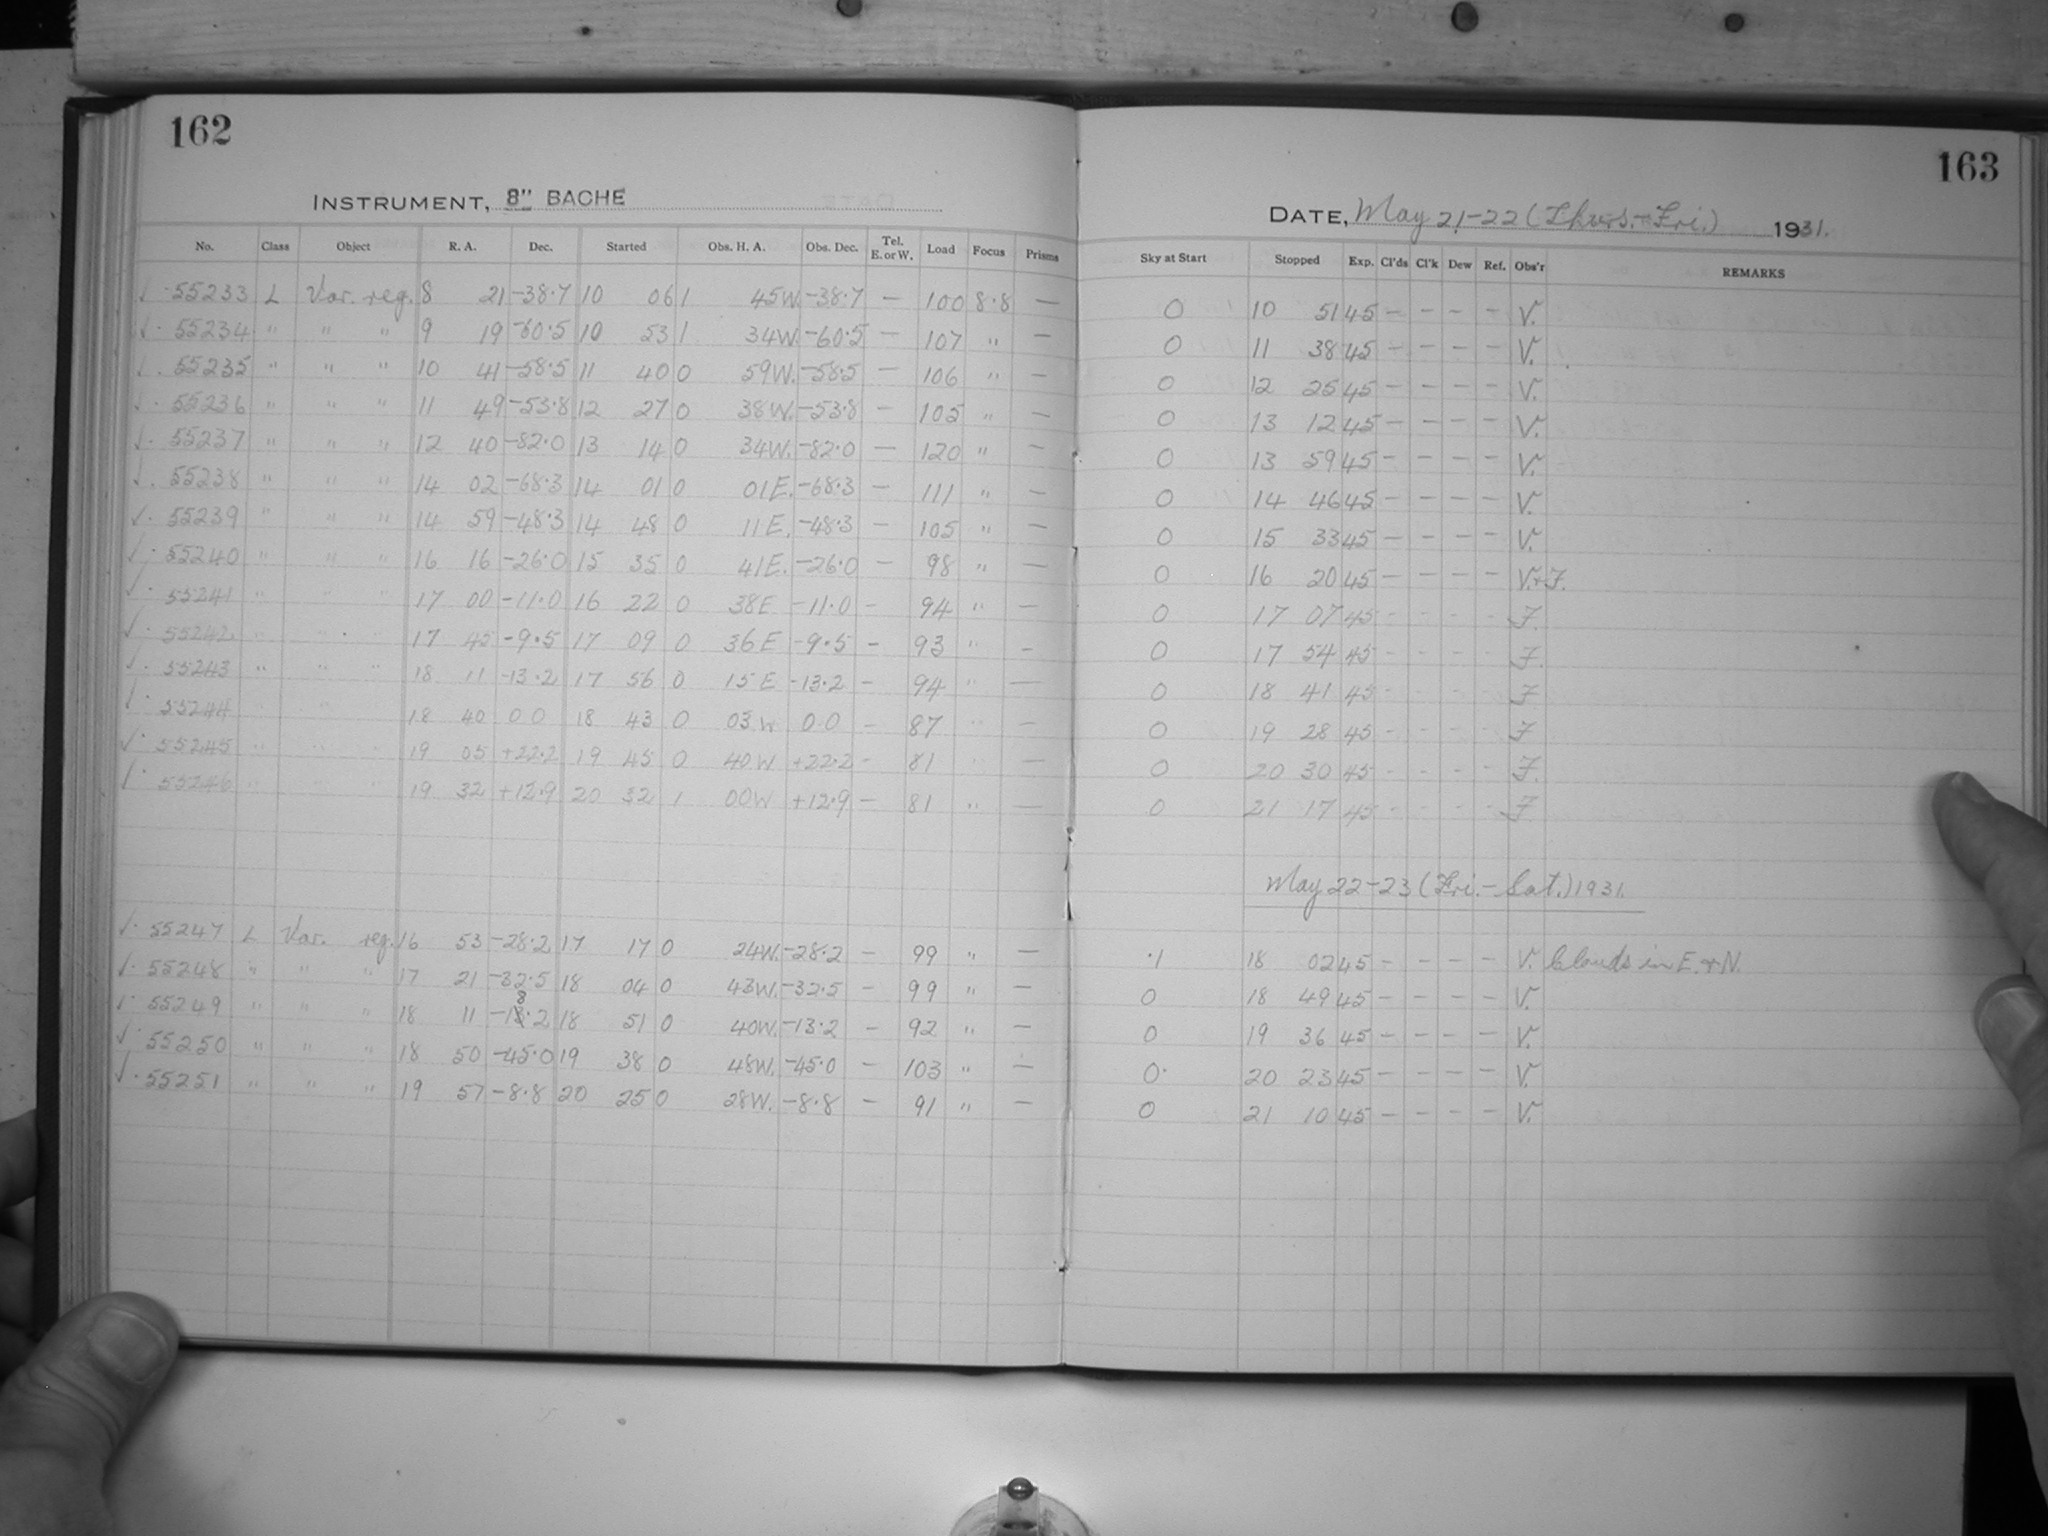 162
INSTRUMENT, 8" BACHE
No. Class Object R. A. Dec. Started Obs. H. A. Obs. Dec. Tel. E. or W. Load Focus Prisms
✓ 55233 L Var. reg. 8 21 -38.7 10 06 1 45W. -38.7 — 100 8.8 —
✓ 55234 " " " 9 19 -60.5 10 53 1 34W. -60.5 — 107 " —
✓ 55235 " " " 10 41 -58.5 11 40 0 59W. -58.5 — 106 " —
✓ 55236 " " " 11 49 -53.8 12 27 0 38W. -53.8 — 105 " —
✓ 55237 " " " 12 40 -82.0 13 14 0 34W. -82.0 — 120 " —
✓ 55238 " " " 14 02 -68.3 14 01 0 01E. -68.3 — 111 " —
✓ 55239 " " " 14 59 -48.3 14 48 0 11E. -48.3 — 105 " —
✓ 55240 " " " 16 16 -26.0 15 35 0 41E. -26.0 — 98 " —
✓ 55241 " " " 17 00 -11.0 16 22 0 38E -11.0 - 94 " —
✓ 55242 " " " 17 45 -9.5 17 09 0 36E -9.5 - 93 " —
✓ 55243 " " " 18 11 -13.2 17 56 0 15E -13.2 - 94 " —
✓ 55244 " " 18 40 0 0 18 43 0 03W 0.0 - 87 " —
✓ 55245 " " " 19 05 +22.2 19 45 0 40W +22.2 - 81 " —
✓ 55246 " " " 19 32 +12.9 20 32 1 00W +12.9 - 81 " —
✓ 55247 L Var. reg. 16 53 -28.2 17 17 0 24W. -28.2 — 99 " —
✓ 55248 " " " 17 21 -32.5 18 04 0 43W. -32.5 — 99 " —
✓ 55249 " " " 18 11 -13.2 18 51 0 40W. -13.2 — 92 " —
✓ 55250 " " " 18 50 -45.0 19 38 0 48W. -45.0 — 103 " —
✓ 55251 " " " 19 57 -8.8 20 25 0 28W. -8.8 — 91 " —
163
DATE, May 21-22 (Thurs.-Fri.) 1931.
Sky at Start Stopped Exp. Cl'ds Cl'k Dew Ref. Obs'r REMARKS
0 10 51 45 — — — — V.
0 11 38 45 — — — — V.
0 12 25 45 — — — — V.
0 13 12 45 — — — — V.
0 13 59 45 — — — — V.
0 14 46 45 — — — — V.
0 15 33 45 — — — — V.
0 16 20 45 — — — — V.+F.
0 17 07 45 - - - - F.
0 17 54 45 - - - - F.
0 18 41 45 - - - - F
0 19 28 45 - - - - F
0 20 30 45 - - - - F.
0 21 17 45 - - - - F
May 22-23 (Fri.-Sat.) 1931.
.1 18 02 45 — — — — V. Clouds in E. + N.
0 18 49 45 — — — — V.
0 19 36 45 — — — — V.
0 20 23 45 — — — — V.
0 21 10 45 — — — — V.